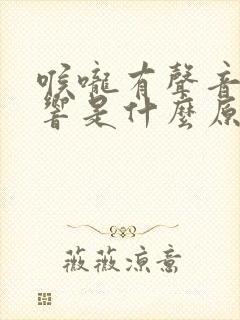 喉嚨有聲音
響是什麼原
薇薇涼意